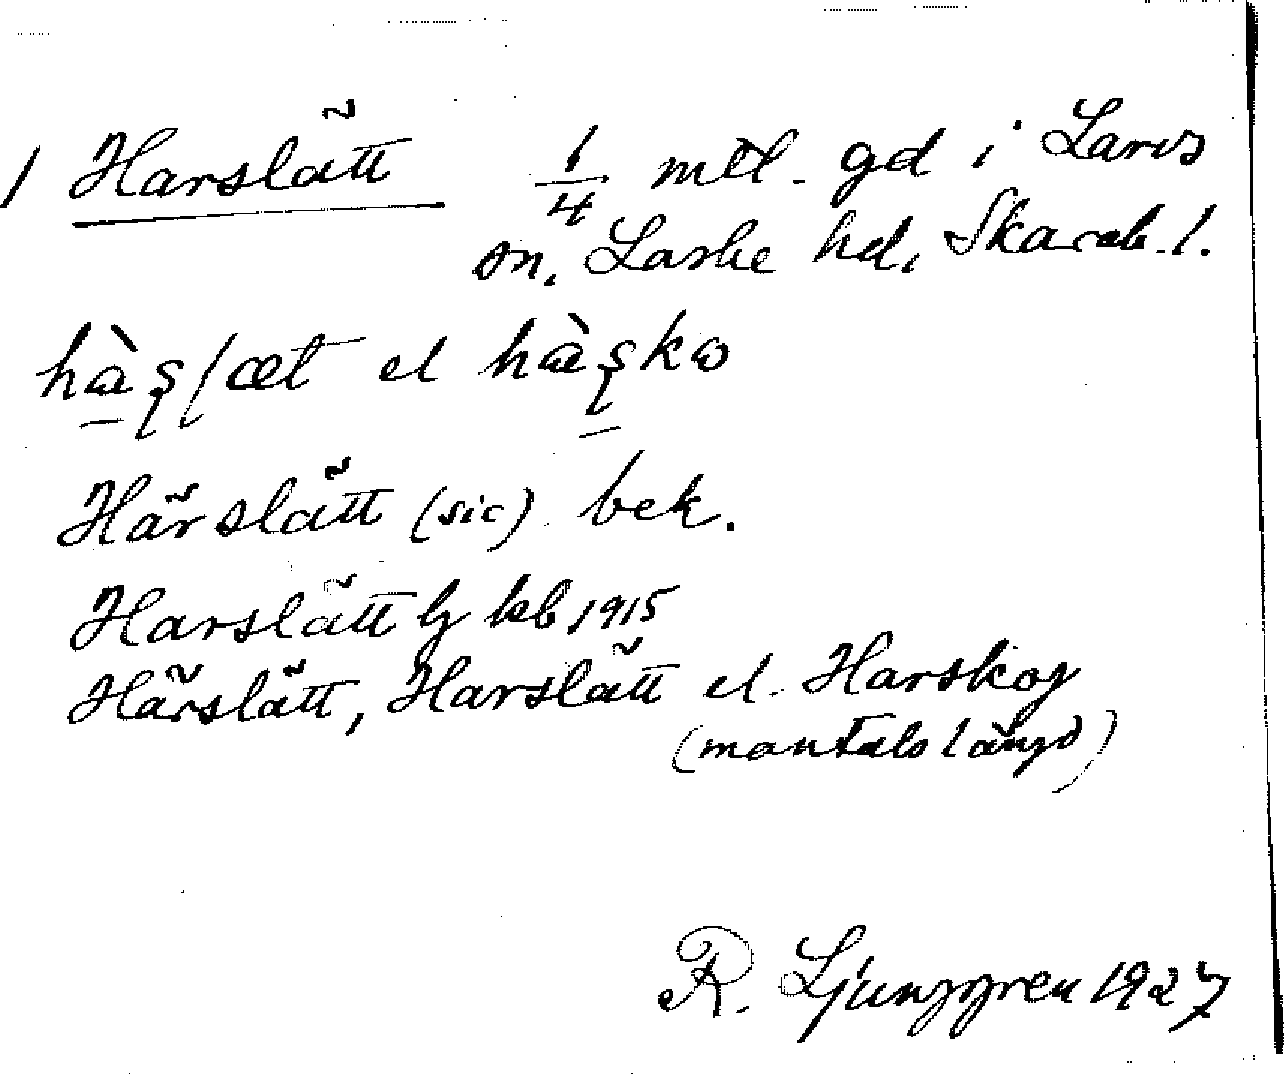 1 Harslätt 1/4 mtl. gd i Larvs
sn. Laske hd, Skarab. l.
hàʂlæt el hàʂkω
Härslätt (sic) bek.
Harslätt lj kb 1915
Härslätt, Harslätt el. Harskog
(mantalslängd)
R. Ljunggren 1927